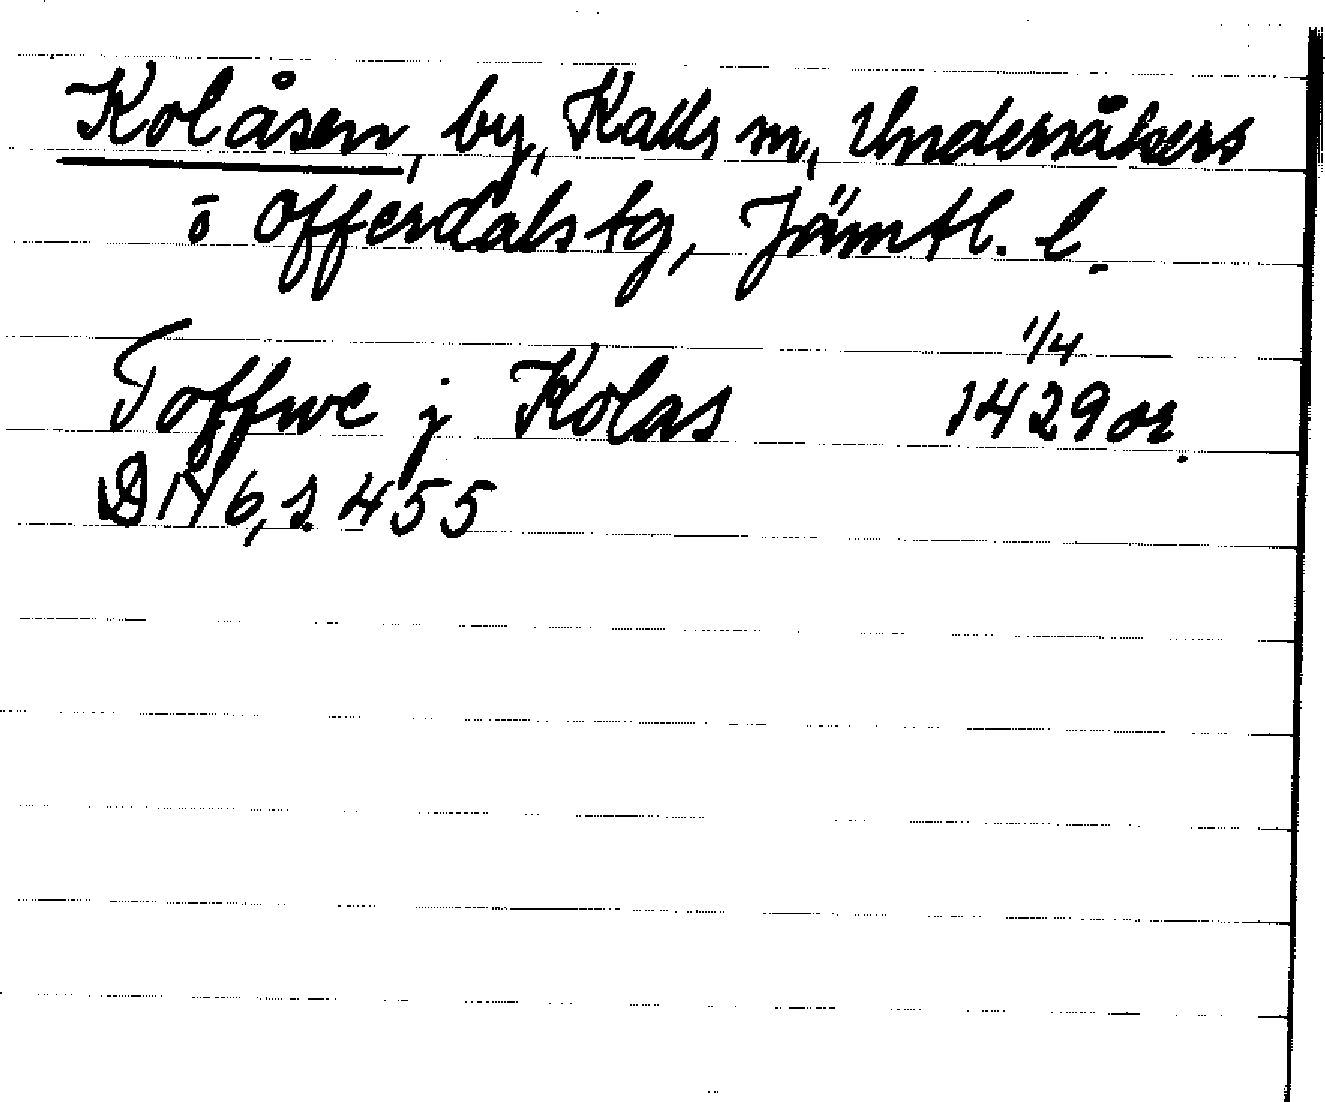 Kolåsen, by, Kalls sn, Undersåkers
o Offerdals tg, Jämtl. l.
1/4
Toffwe j Kolas 1429 or.
DN 6, s. 455